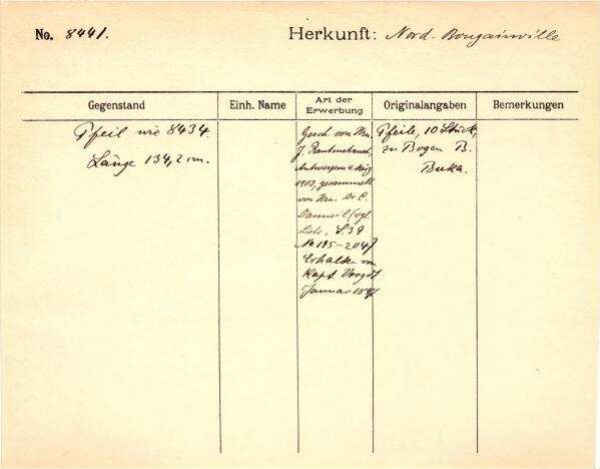 No. 8441. Herkunft: Nord-Bougainville
Gegenstand
Einh. Name
Art der Erwerbung
Originalangaben
Bemerkungen
Pfeil wie 8434.
Länge 134,2 cm.
Gesch. von Hrn.
J. 
Antwerpen
1903, gesammelt
von Hrn. Dr. E.
Danneil (vgl.
S. 39
No 195-204)
Erhalten von
Kapt. Voogdt
Januar
Pfeile, 10 Stück,
zu Bogen B.
Buka.